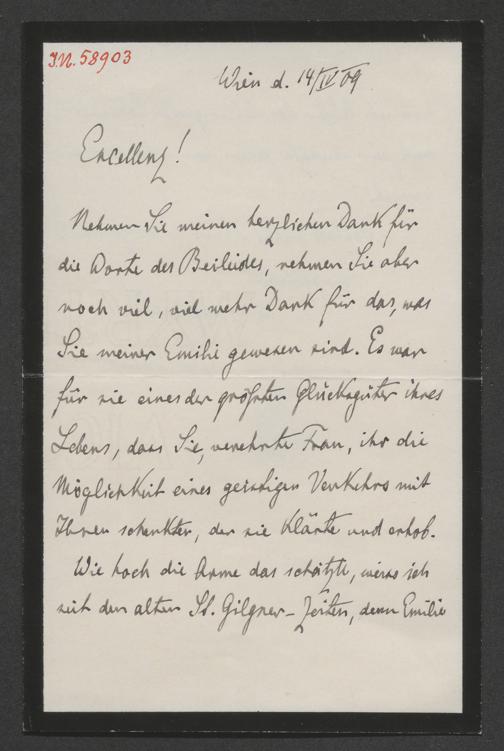 I.N. 58903
Wien d. 14/IV 09
Excellenz!
Nehmen Sie meinen herzlichen Dank für
die Worte des Beileides, nehmen Sie aber
noch viel, viel mehr Dank für das, was
Sie meiner Emilie gewesen sind. Es war
für sie eines der größten Glücksgüter ihres
Lebens, dass Sie, verehrte Frau, ihr die
Möglichkeit eines geistigen Verkehrs mit
Ihnen schenkten, der sie klärte und erhob.
Wie hoch die Arme das schätzte, weiss ich
seit den alten St. Gilgner-Zeiten, denn Emilie